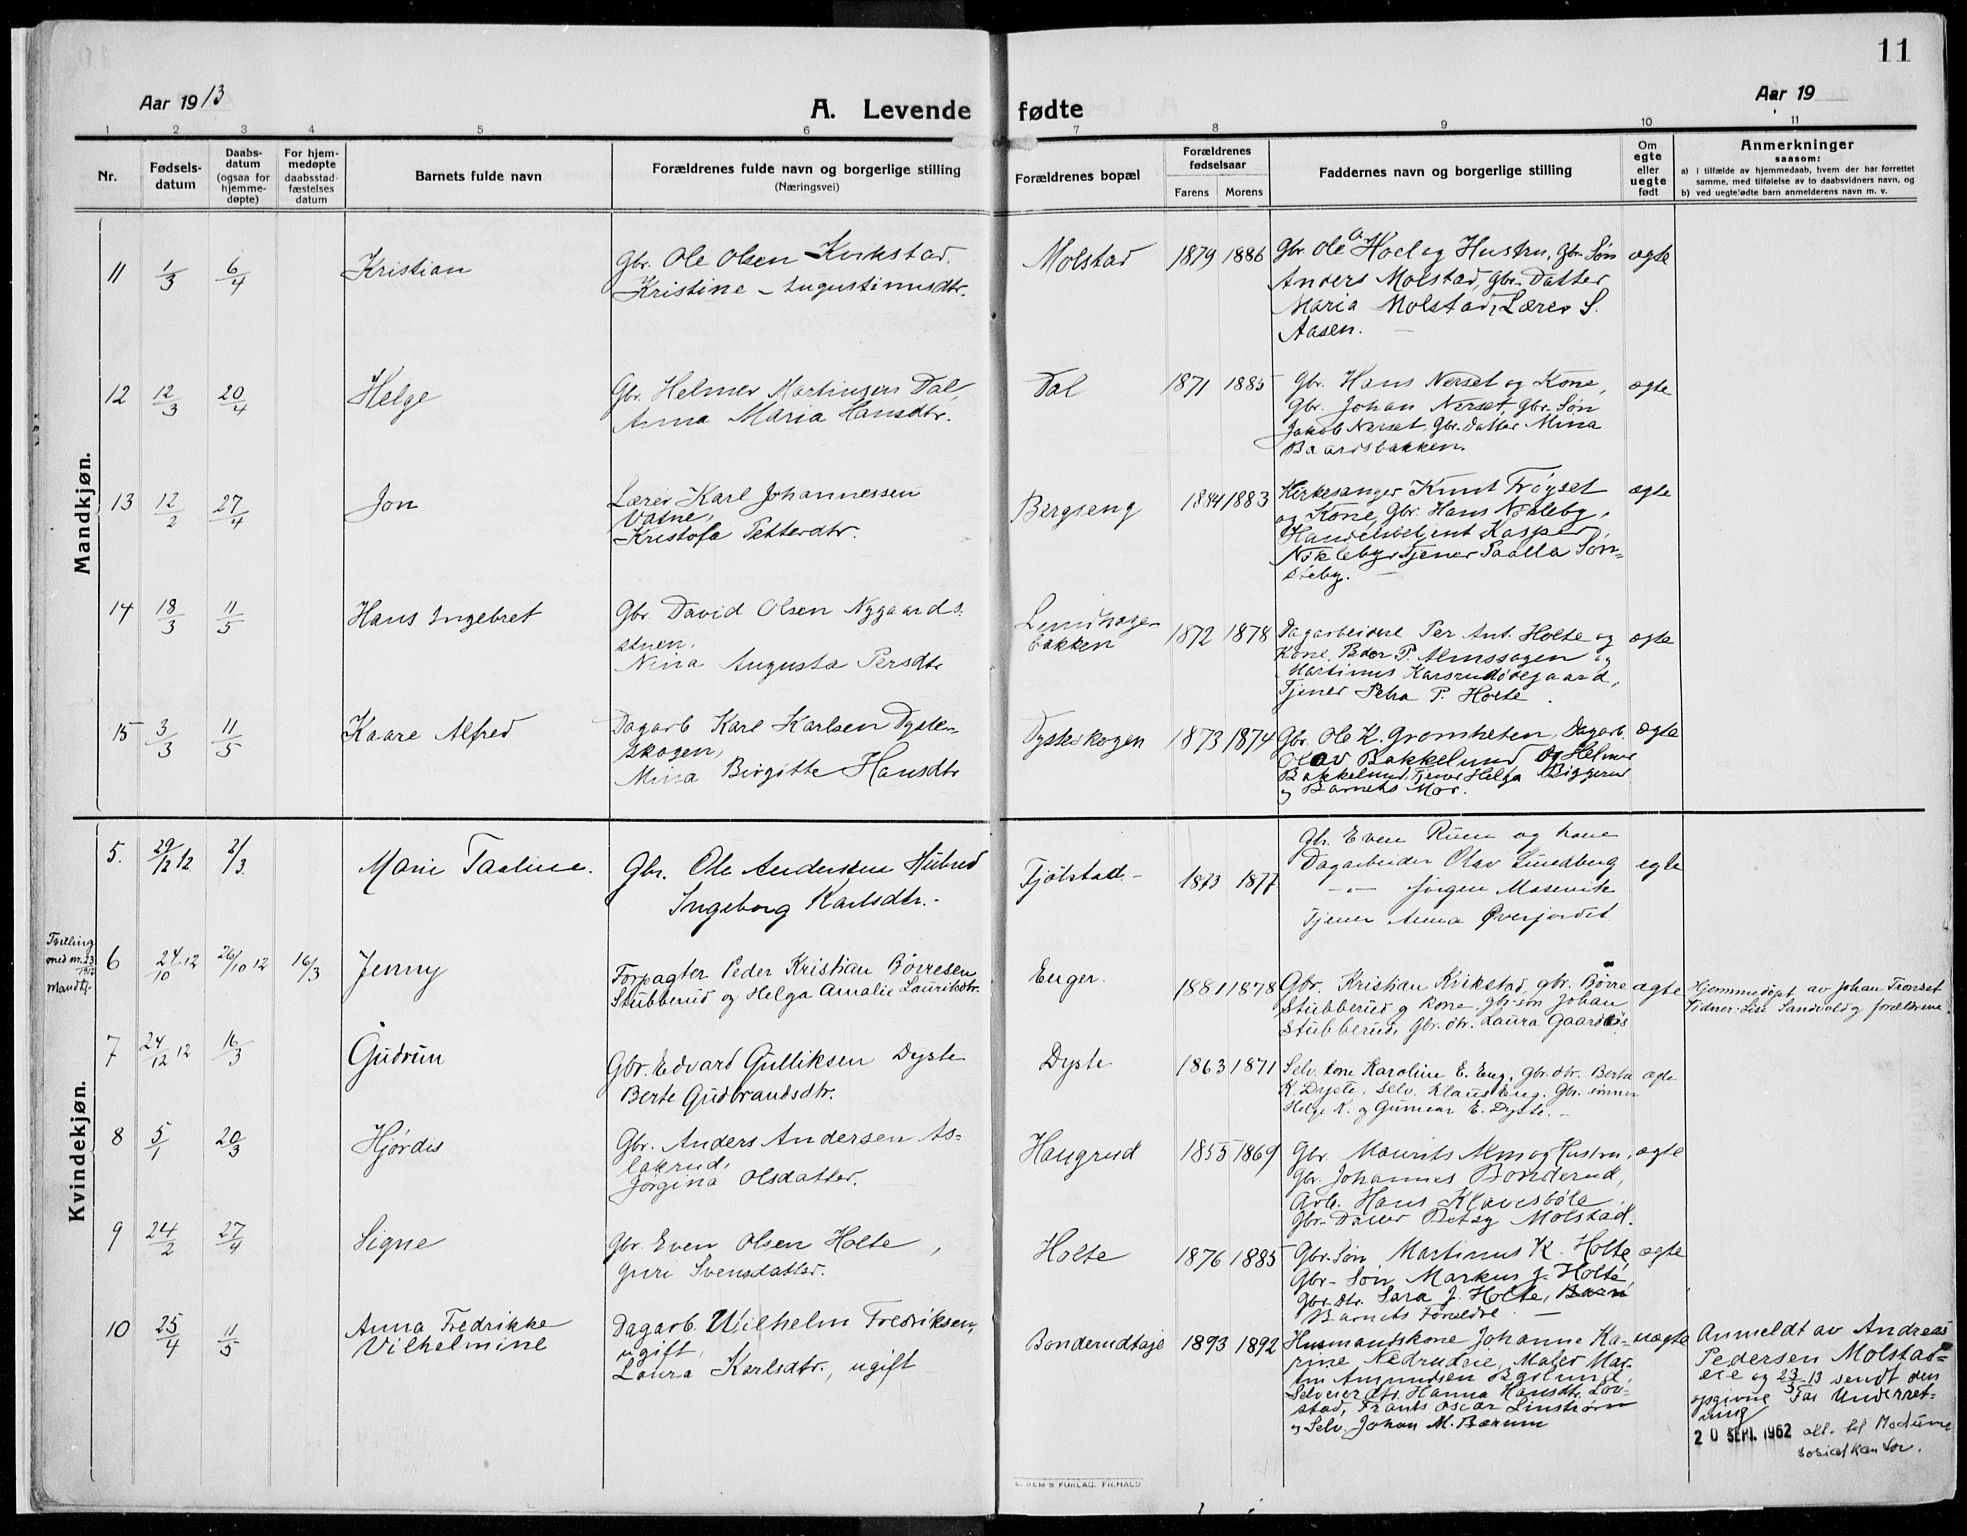 11
Aar 1913
A. Levende fødte
Aar 19
1 2 3 4 5 6 7 8 9 10 11
Nr.
Fødsels-
datum
Daabs-
datum
(ogsaa for
hjemme-
døpte)
For hjem-
medøpte
daabsstad-
fæstelses
datum
Barnets fulde navn
Forældrenes fulde navn og borgerlige stilling
(Næringsvei)
Forældrenes bopæl
Forældrenes
fødselsaar
Farens Morens
Faddernes navn og borgerlige stilling
Om
egte
eller
uegte
født
Anmerkninger
saasom:
a) i tilfælde av hjemmedaab, hvem der har forrettet
samme, med tilføielse av to daabsvidners navn, og
b) ved uegtefødte barn anmelderens navn m. v.
Mandkjøn.
11 1/3 6/4 Kristian
Gbr. Ole Olsen Kirkstad.
Kristine Augustinusdtr.
Molstad 1879 1886
Gbr. Ole Hoel og Hustru, Gbr. Søn
Anders Molstad, Gbr. Datter
Maria Molstad, Lærer S.
Aasen.
ægte
12 12/3 20/4 Helge
Gbr. Helmer Martinsen Dal,
Anna Maria Hansdtr.
Dal 1871 1885
Gbr. Hans Nerset og Kone,
Gbr. Johan Nerset, Gbr. Søn
Jakob Nerset, Gbr. Datter Mina
Baardsbakken.
ægte
13 12/2 27/4 Jon
Lærer Karl Johannessen
Vatne,
Kristofa Petterdtr.
Bergseng 1884 1883
Kirkesanger Knut Trøyset
og Kone, Gbr. Hans Nikleby,
Handelsbetjent Kasper
Nikleby, Tjener Paalla Søn-
steby.
ægte
14 18/3 11/5 Hans Ingebret
Gbr David Olsen Nygaards-
stuen.
Nina Augusta Persdtr
bakken 1872 1878
Dagarbeidere Per Ant. Holte og
Kone, Peder P. Almshagen og
Martinus Karsrudødegaard,
Tjener Petra P. Holte.
ægte
15 3/3 11/5 Kaare Alfred
Dagarb Karl Karlsen Dyste-
skogen,
Mina Birgitte Hansdtr
Dysteskogen 1873 1874
Gbr. Ole K. Gromheten, Dagarb.
Olav Bakkelund og Helmer
Bakkelund, Tjener Helga Biggerud
og Barnets Mor.
ægte
Kvindekjøn.
5. 29/12 12 2/3 Marie Taaline.
Gbr. Ole Andersen Hubred
Ingeborg Karlsdtr.
Fjølstad. 1873 1877
Gbr. Even Ruen og kone
Dagarbeider Olav Lundberg
— " — Jørgen Masevik
Tjener Anna Øverjordet
egte
Tvilling
med nr. 23
1912
Mandkj.
6 24/10 12 26/10 12 16/3 Jenny
Forpagter Peder Kristian Børresen
Stubberud og Helga Amalie Lauritsdtr.
Enger. 1881 1878
Gbr. Kristian Kirkestad, gbr. Børre
Stubberud og kone, gbr. søn Johan
Stubberud, Gbr. dtr. Laura Gaardløs
ægte
Hjemmedøpt av Johan Tronset
Vidner: Lise Sandvold og forældrene.
7 24/12 12 16/3 Gudrun
Gbr. Edvard Gulliksen Dyste
Berte Gudbrandsdtr.
Dyste 1863 1871
Selv. kone Karoline E. Eng, Gbr. dtr. Berta
K. Dyste, Selv. Klaus Eng. Gbr. sønner
Helge K. og Gunnar E. Dyste.
ægte
8 5/1 20/3 Hjørdis
Gbr. Anders Andersen As-
lakrud,
Jørgina Olsdatter.
Haugrud 1855 1869
Gbr. Maurits Alm og Hustru,
Gbr. Johannes Bonderud,
Arb. Hans Klavesbøle,
Gbr. Datter Betsy Molstad.
ægte
9 24/2 27/4 Signe
Gbr. Even Olsen Holte,
Guri Svensdatter.
Holte 1876 1885
Gbr. Søn Martinus K. Holte,
Gbr. Søn Markus J. Holte,
Gbr. Dtr. Sara J. Holte,
Barnets Forældre
ægte
10 25/4 11/5 Anna Fredrikke
Vilhelmine
Dagarb. Wilhelm Fredriksen,
ugift,
Laura Karlsdtr., ugift
Bonderudteje 1893 1892
Husmandskone Johanne Ka-
rine Nedrudeie, Maler Mar-
tin Amundsen Børlund,
Selveierdtr. Hanna Hansdtr. Løv-
stad, Frants Oscar Linstrøm
og Selv. Johan M. Bærum
uægte
Anmeldt av Andreas
Pedersen Molstad-
eie og 23/5 13 sendt den
opgivne Far Underret-
ning
20 SEPT. 1962 att. til Modum
sosialkontor.
E. SEM'S FORLAG. FR.HALD